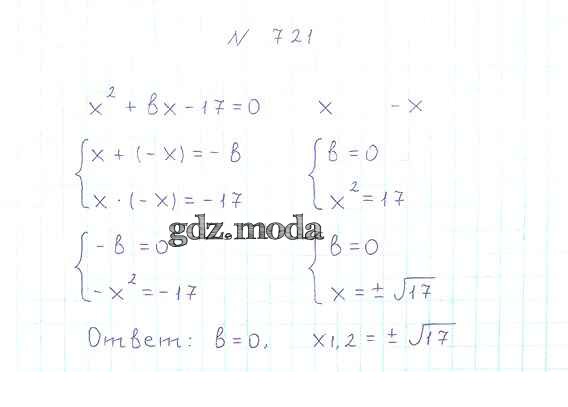 N 721
x² + bx - 17 = 0 x - x
{ x + (- x) = - b { b = 0
x · (- x) = - 17 x² = 17
gdz.moda
{ - b = 0 { b = 0
- x² = - 17 x = ± √17
Ответ: b = 0, x1,2 = ± √17